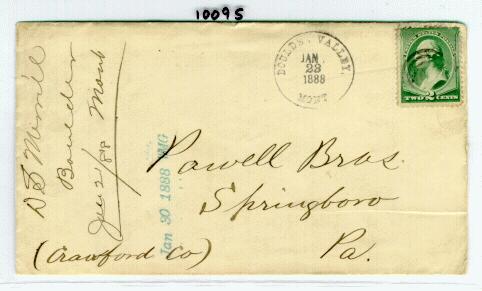 10095
D S Merrill
Boulder
Mont
BOULDER VALLEY,
JAN.
23
1888
MONT
TWO 2 CENTS
Jan 30 1888
Powell Bros.
Springboro
Pa.
(Crawford Co)